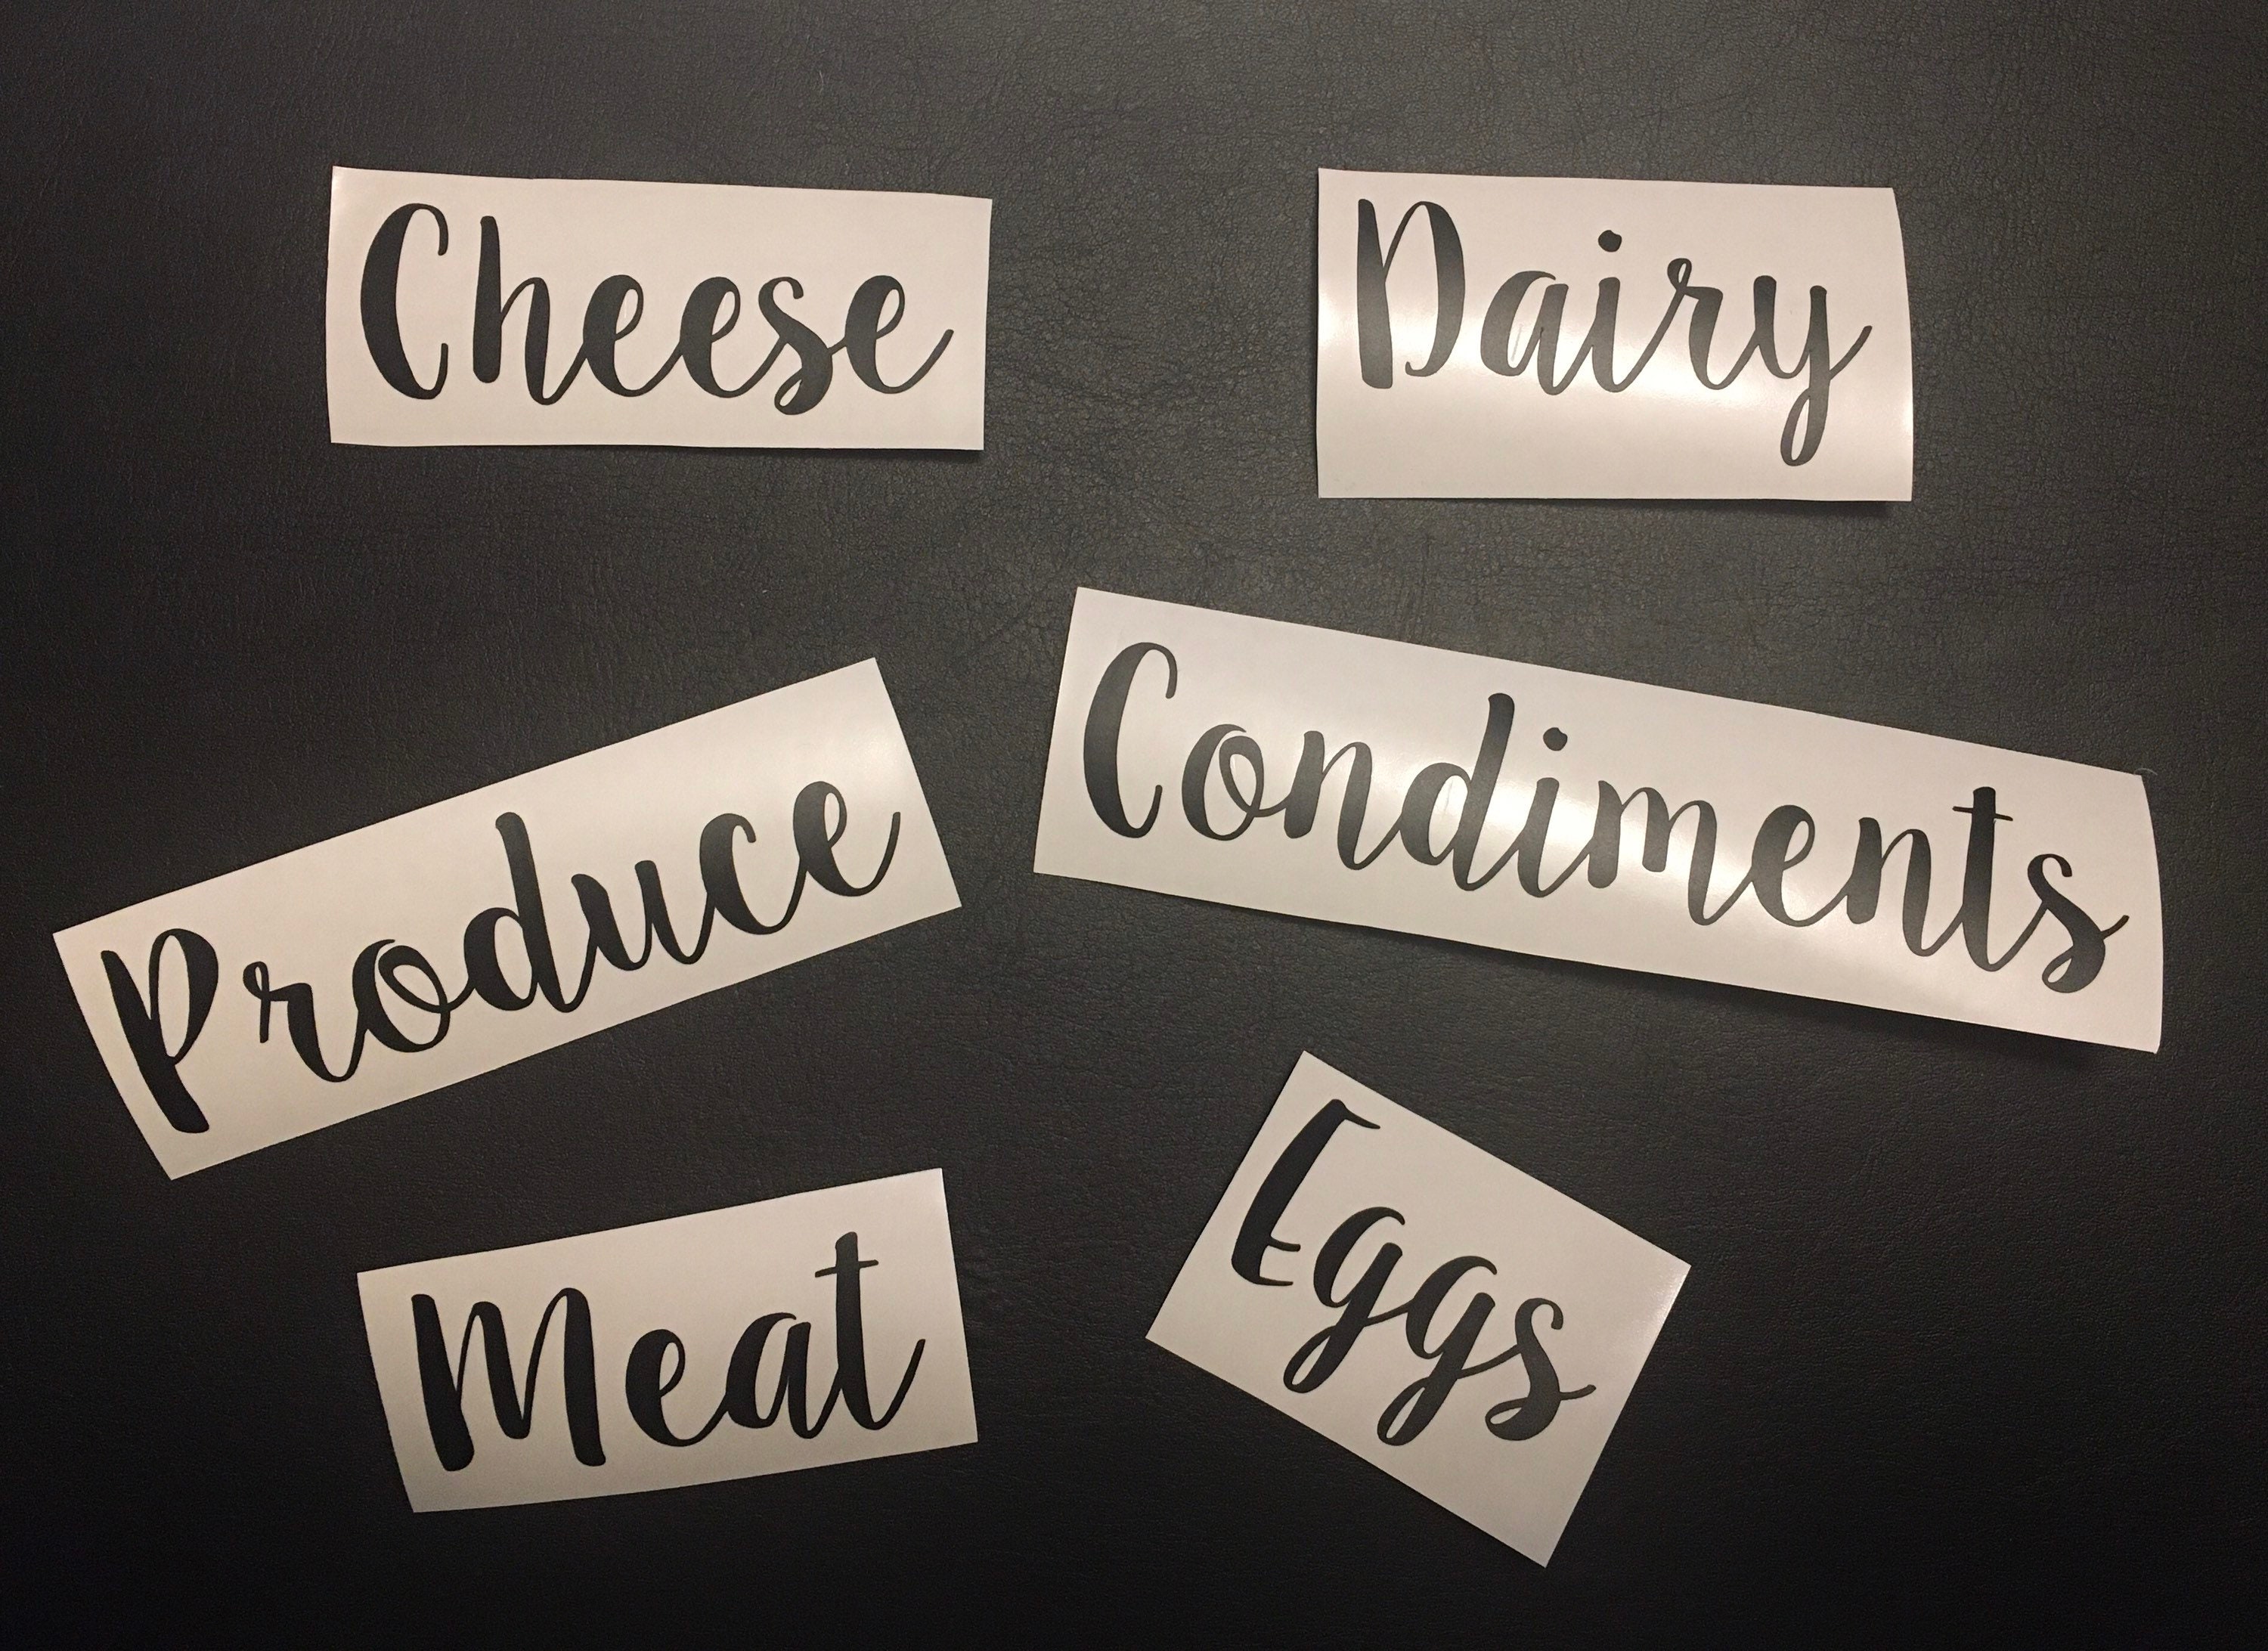 Cheese
Dairy
Produce
Condiments
Meat
Eggs